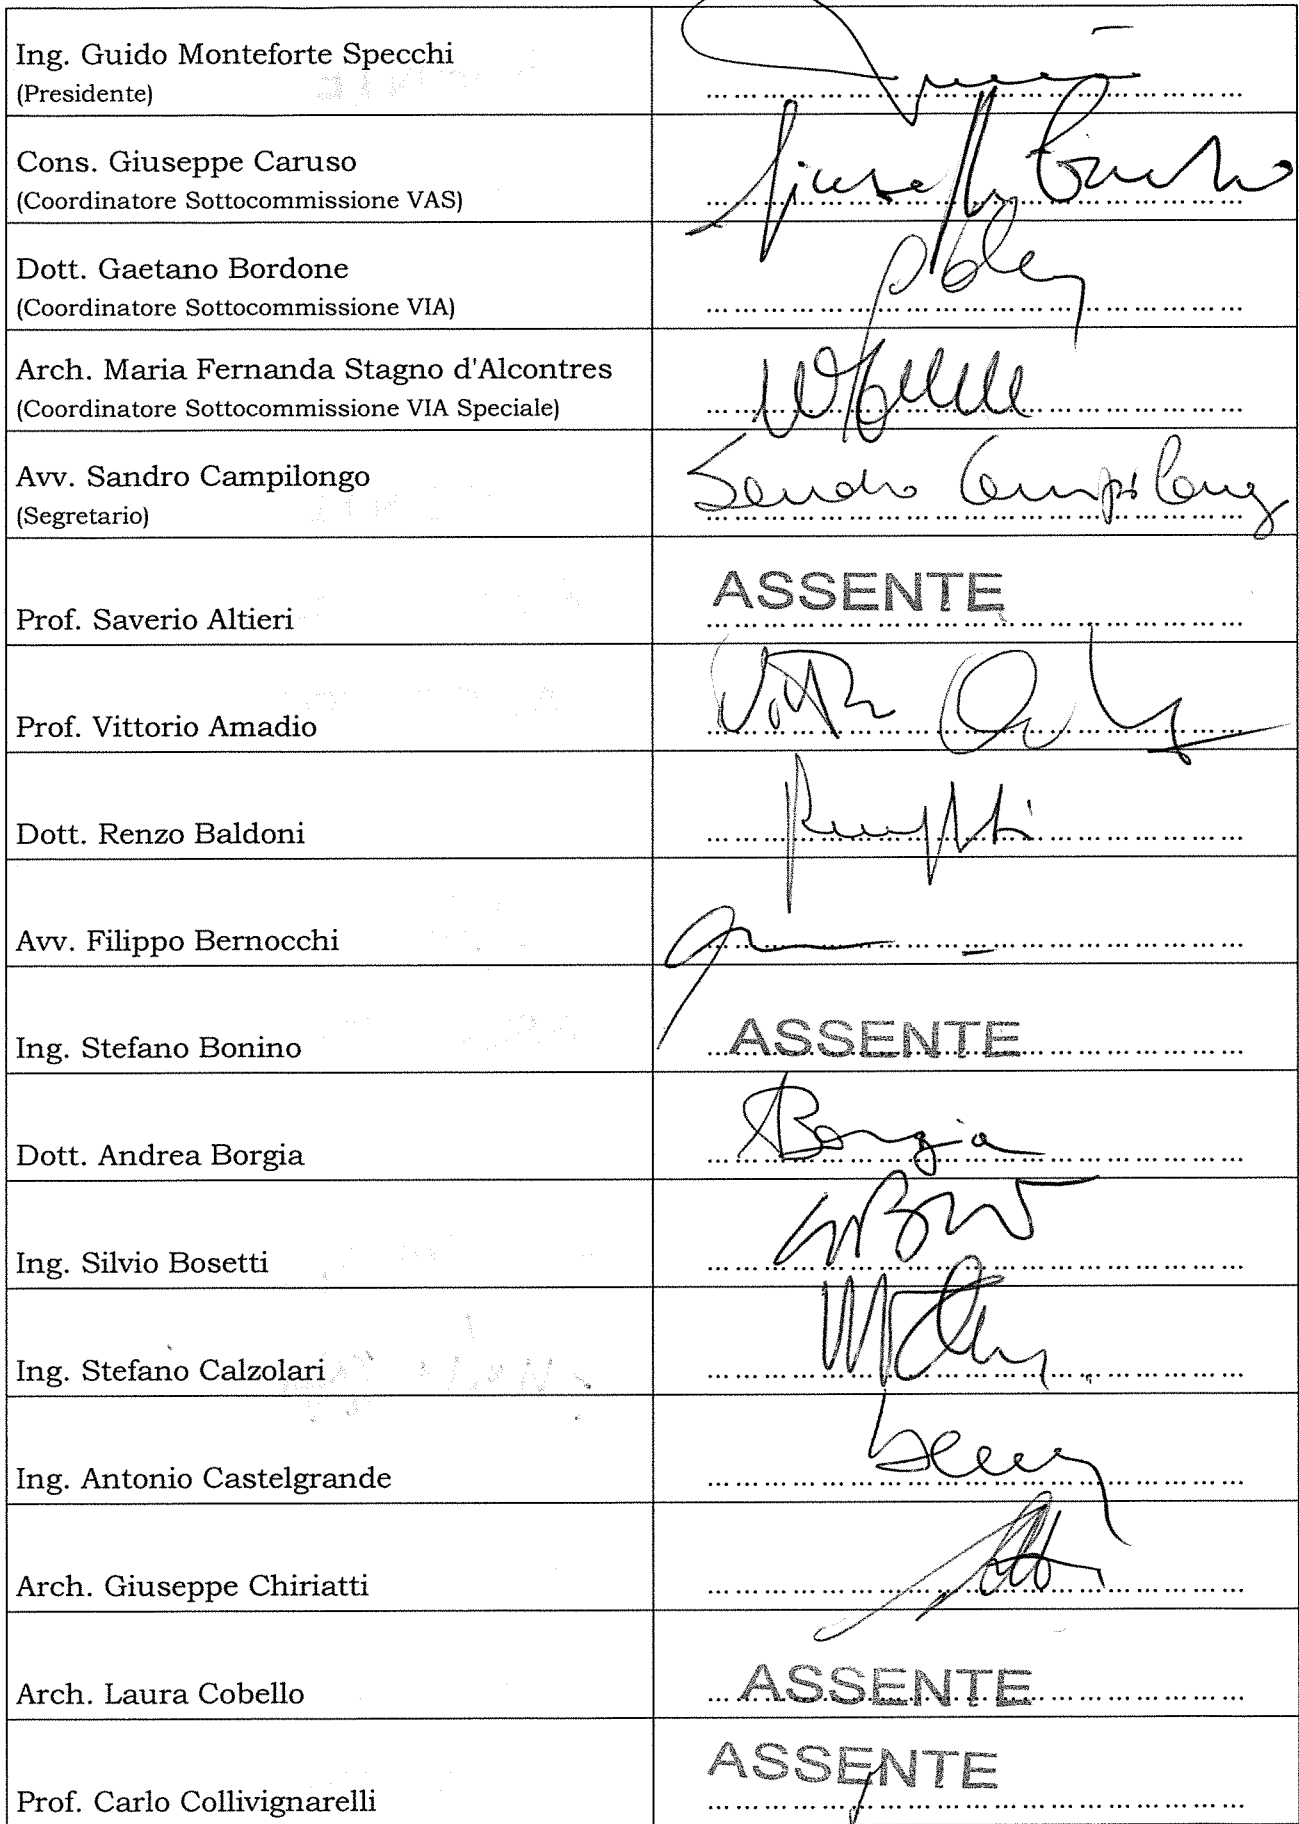 Ing. Guido Monteforte Specchi
(Presidente)
Cons. Giuseppe Caruso
(Coordinatore Sottocommissione VAS)
Giuseppe Caruso
Dott. Gaetano Bordone
(Coordinatore Sottocommissione VIA)
Arch. Maria Fernanda Stagno d'Alcontres
(Coordinatore Sottocommissione VIA Speciale)
Avv. Sandro Campilongo
(Segretario)
Sandro Campilongo
Prof. Saverio Altieri
ASSENTE
Prof. Vittorio Amadio
Dott. Renzo Baldoni
Avv. Filippo Bernocchi
Ing. Stefano Bonino
ASSENTE
Dott. Andrea Borgia
ABorgia
Ing. Silvio Bosetti
Ing. Stefano Calzolari
Ing. Antonio Castelgrande
Arch. Giuseppe Chiriatti
Arch. Laura Cobello
ASSENTE
Prof. Carlo Collivignarelli
ASSENTE